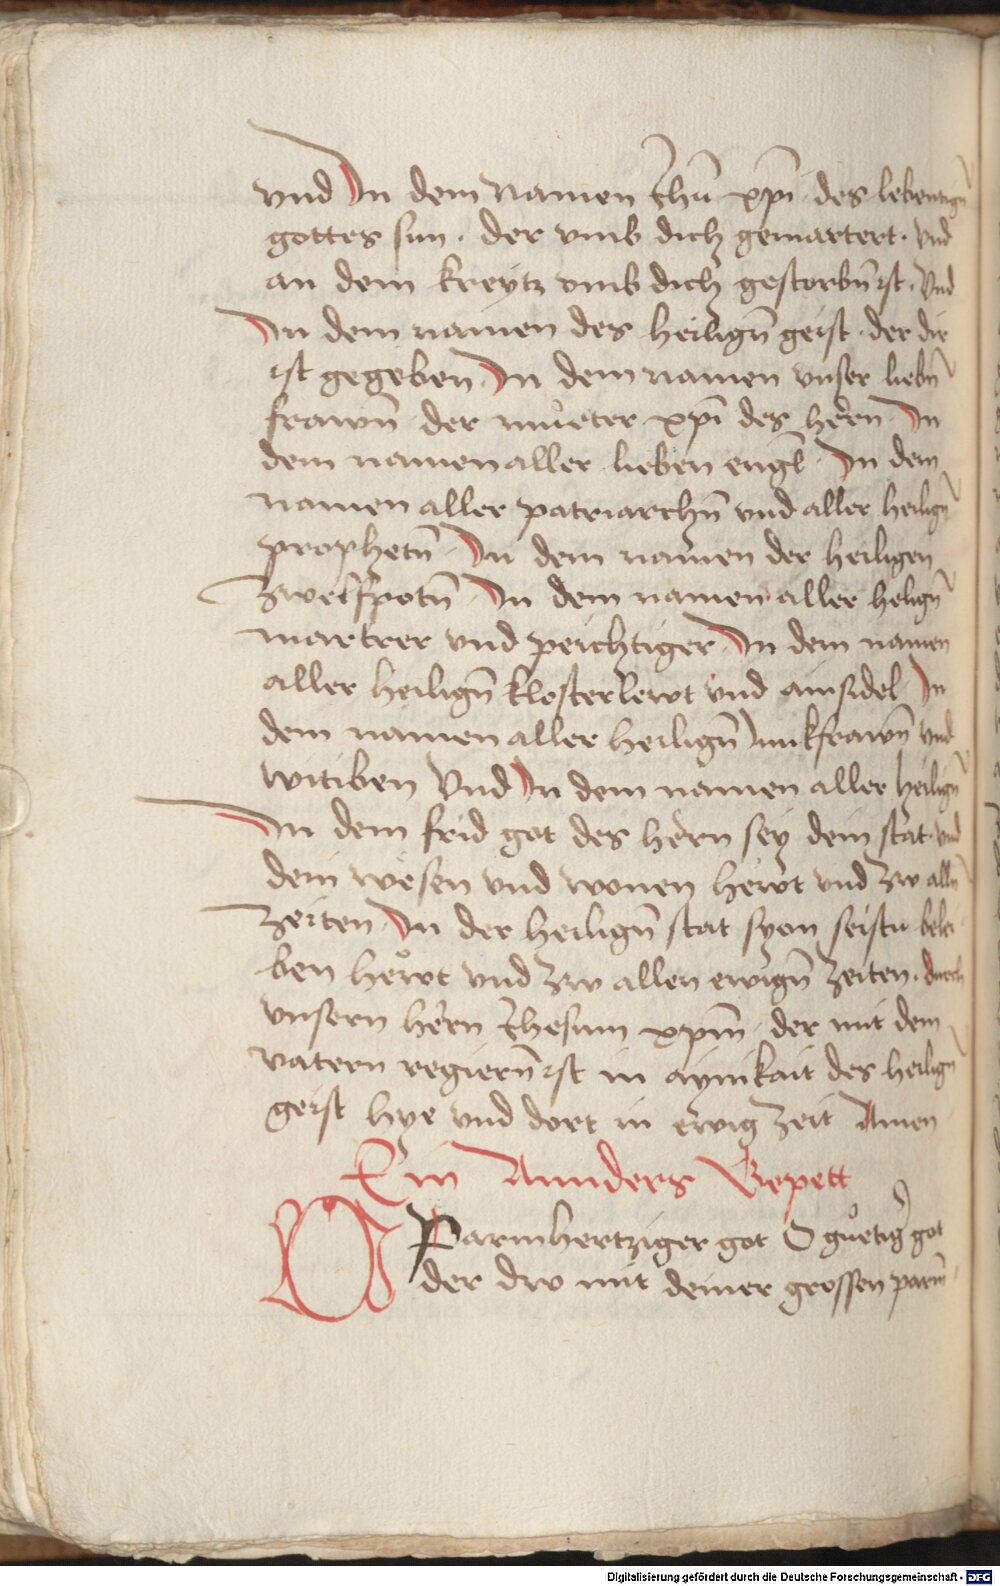 vnd In dem namen Ihū xp̄i des lebentign̄
gottes sun. der vmb dich gemartert. vnd
an dem kreytz vmb dich gestorbn̄ ist. Vnd
In dem namen des heilign̄ geist. der dir
ist gegeben In dem namen vnser liebn̄
frawn̄ der mueter xp̄i des hern In
dem namen aller lieben engl̄ In dem
namen aller patriarchn̄ vnd aller heilign̄
prophetn̄ In dem namen der heiligen
zwelfpotn̄ In dem namen aller helign̄
martrer vnd peichtiger In dem namen
aller heilign̄ klosterlewt vnd ainsidel In
dem namen aller heilign̄ Junkfrawn̄ vnd
witiben Vnd In dem namen aller heilign̄
In dem frid got des hern sey dein stat. vnd
dein wesen vnd wonen hewt vnd zw alln̄
zeiten In der heilign̄ stat syon seistu belei
ben hewt vnd zw allen ewign̄ zeiten. durch
vnsern hern Ihesum xp̄m der mit dem
vatern regiern̄ ist in aynikait des heilign̄
geist hye vnd dort in ewig zeit Amen
Ein Annders Gepett
O Parmhertziger got O guetiḡ got
der dw mit deiner grossen parm̄
Digitalisierung gefördert durch die Deutsche Forschungsgemeinschaft - DFG